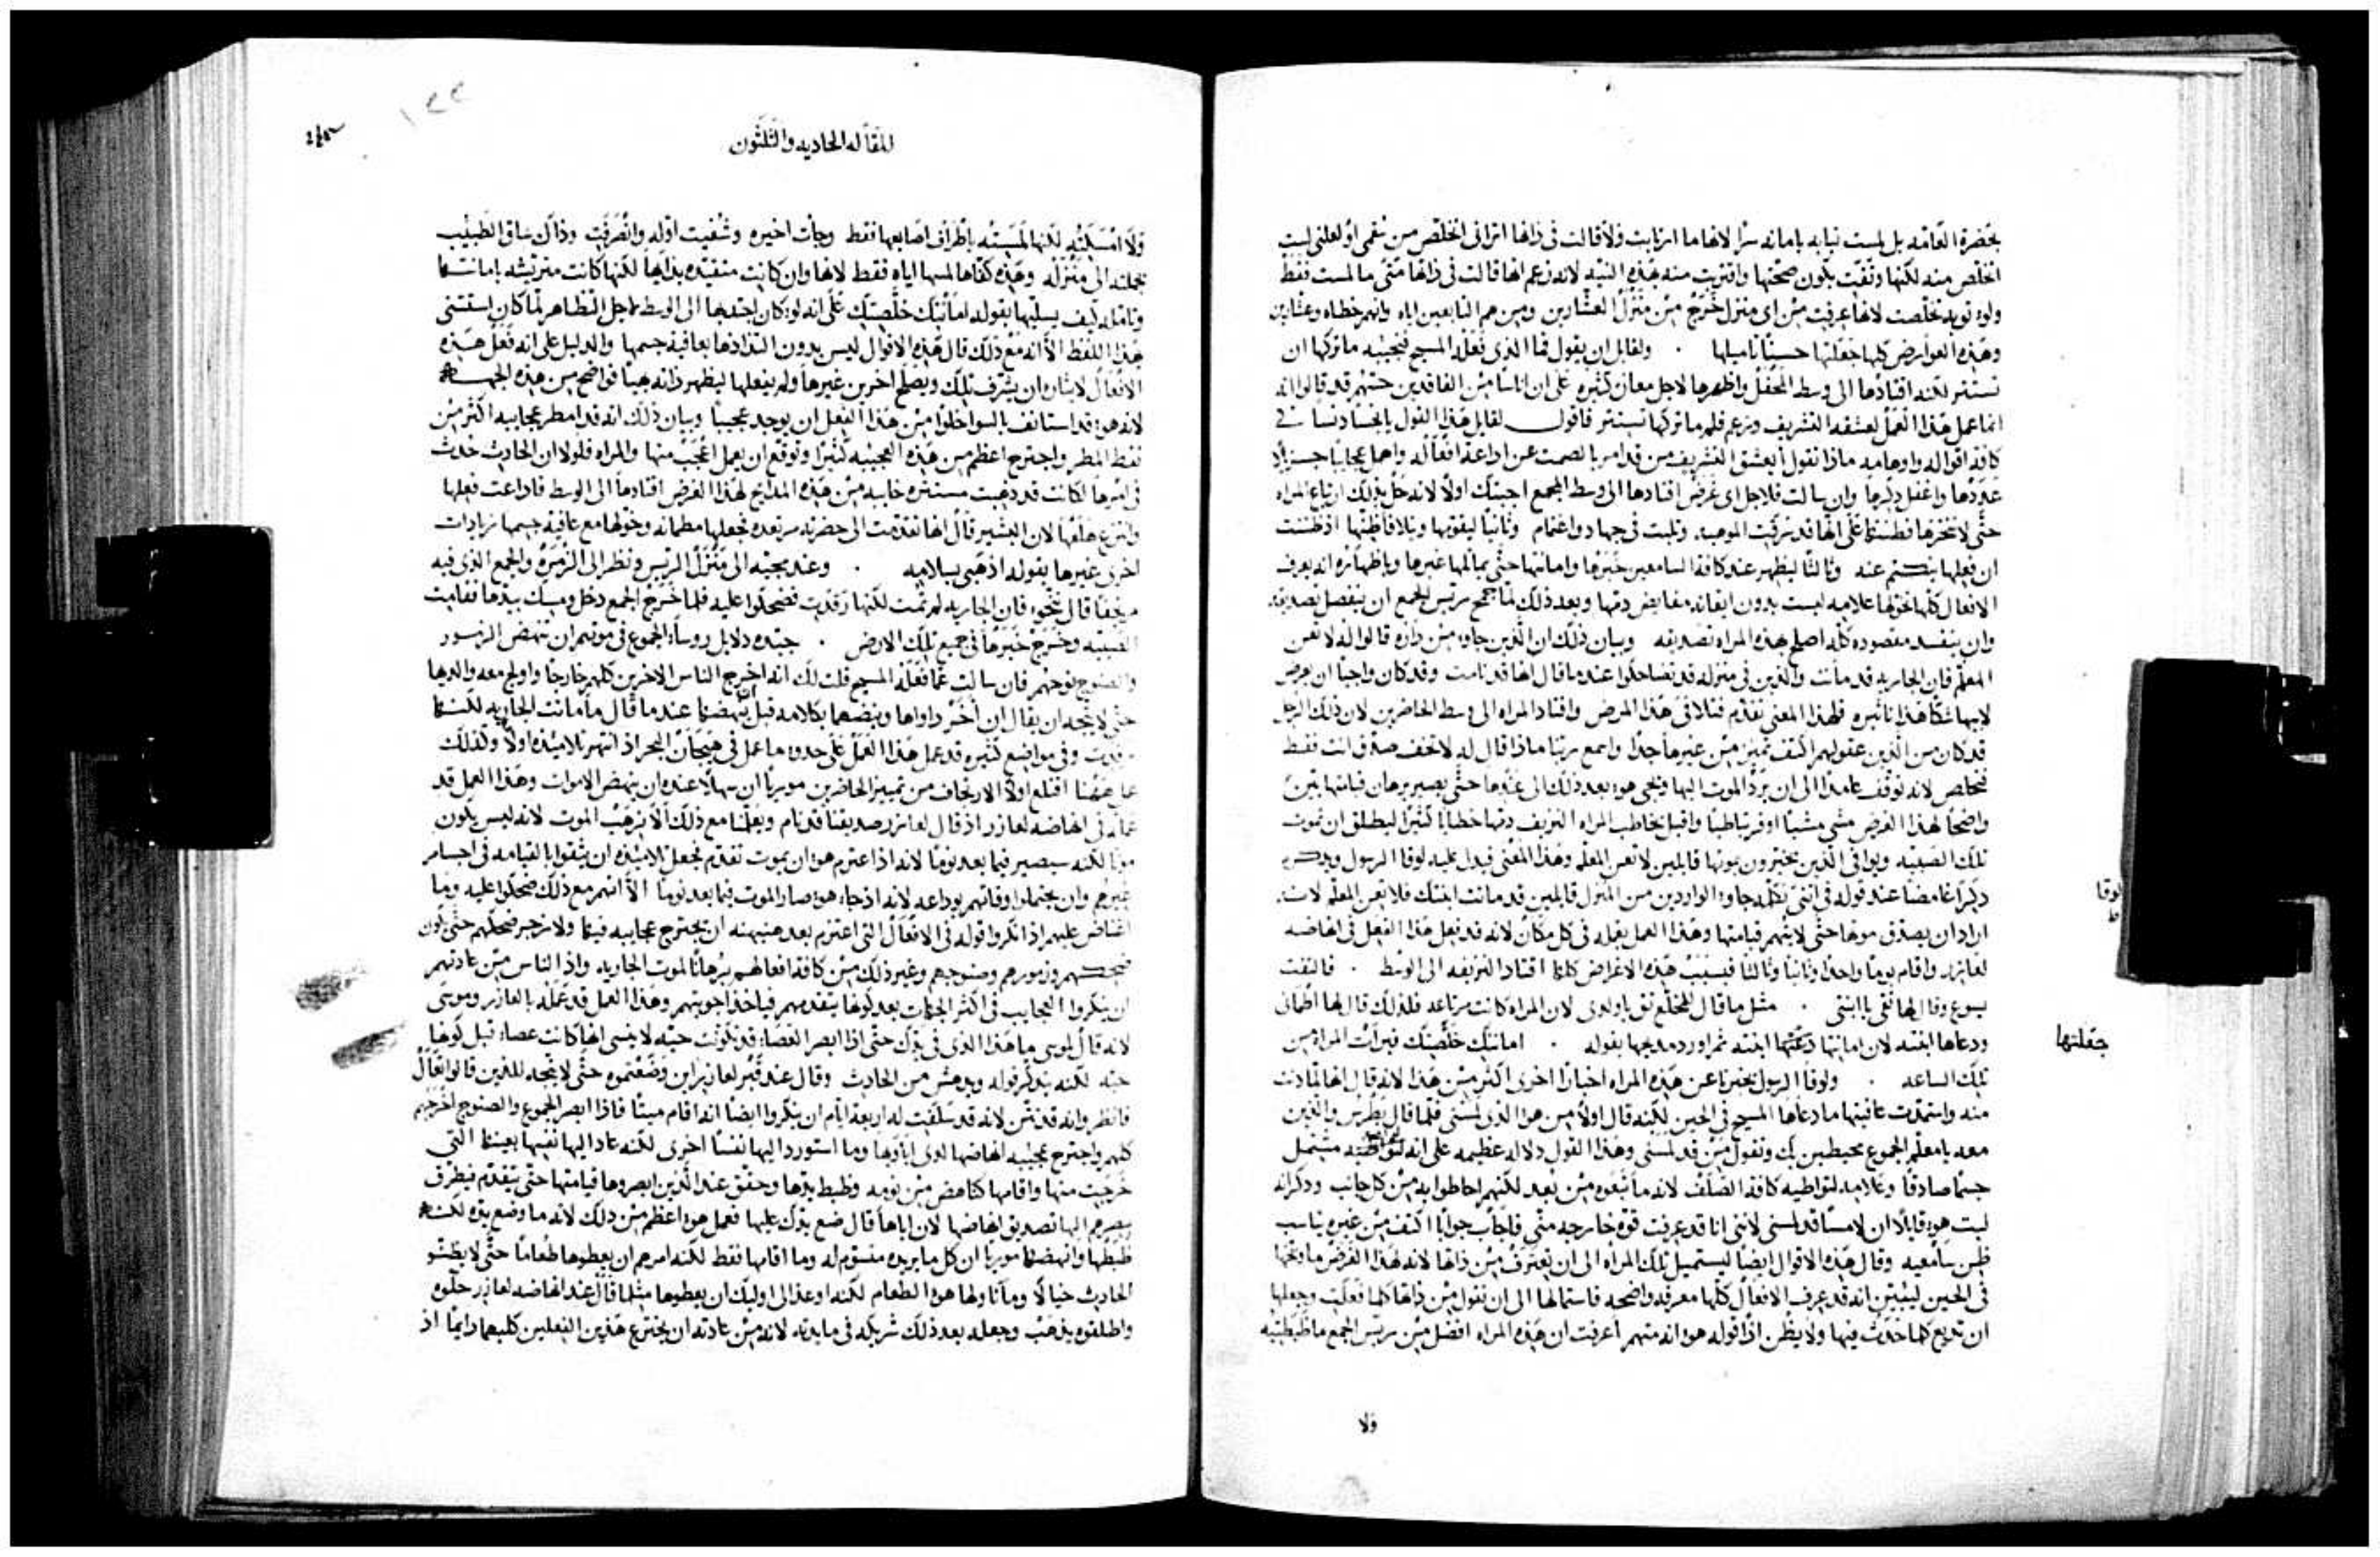 بحضرة العامه بل لمست ثيابه بامانه سرًا لانها ما ارتابت ولا قالت في ذاتها اتراني اتخلص من سقمي او لعلني لست
اتخلص منه لكنها وثقت بكون صحتها واقتربت منه بهذه النيه لانه زعم انها قالت في ذاتها متى ما لمست فقط
ولو ثوبه تخلصت لانها عرفت من اي منزل خرج من منزل العشارين ومن هم التابعين اياه وانهم خطاه وعشارين
وهذه العوارض كلها جعلتها حسنًا تاميلها . ولقايل ان يقول فما الذي فعله المسيح فنجيبه ما تركها ان
تستتر لكنه اقتادها الى وسط المحفل واظهرها لاجل معان كثيره على ان اناسًا من الفاقدين حسهم قد قالوا انه
انما عمل هذا العمل لعشقه التشريف وزعم فلم ما تركها تستتر فاقول لقايل هذا القول يا نجسًا دنسًا في
كافة اقواله واوهامه ماذا تقول أيعشق التشريف من قد امر بالصمت عن اذاعة افعاله واهمل عجايبًا جزيل
عددها واغفل ذكرها وان سالت فلاجل اي غرض اقتادها الى وسط المجمع اجبتك اولًا لانه حل بذلك ارتياع المراه
حتى لا تنخزها فطنتها على انها قد سرقت الموهبه وتلبث في جهاد واغتمام وثانيًا ليقومها وتلافا ظنها اذ ظننت
ان فعلها ينكتم عنه وثالثًا ليظهر عند كافة السامعين خبرها وامانتها حتى يماثلها غيرها وباظهاره انه يعرف
الافعال كلها نحوها علامه ليست بدون ايقافه مفايض دمها وبعد ذلك لما جمح رئيس المجمع ان ينفصل تصديقه
وان ينفسد مقصوده كله اصلح بهذه المراه تصديقه وبيان ذلك ان الذين جاوه من داره قالوا له لا تعن
المعلم فان الجاريه قد ماتت والذين في منزله قد تضاحكوا عندما قال انها قد نامت وقد كان واجبًا ان يعرض
لابيها شكًا هذا تاثيره فلهذا المعنى تقدم فتلافى هذا المرض واقتاد المراه الى وسط الحاضرين لان ذلك الرجل
قد كان من الذين عقولهم اكثف تميز من غيرها جدًا واسمع ربنا ماذا قال له لا تخف صدق انت فقط
فتخلص لانه توقف عامدًا الى ان يرد الموت اليها ويجي هو بعد ذلك الى عندها حتى يصير برهان قيامتها بين
واضحًا لهذا الغرض مشى مشيًا اوفر تباطيًا واقبل يخاطب المراه النزيف دمها خطابًا كثيرًا ليطلق ان تموت
تلك الصبيه ويوافي الذين يخبرون بموتها قايلين لا تعن المعلم وهذا المعنى فيدل عليه لوقا الرسول ويذكره
ذكرًا غامضًا عند قوله في اثنى تكلمه جاوه الواردين من المنزل قايلين قد ماتت ابنتك فلا تعن المعلم لانه
اراد ان يصدق موتها حتى لا يتهم قيامتها وهذا العمل يعمله في كل مكان لانه قد فعل هذا الفعل في انهاضه
لعازر واقام يومًا واحدًا وثانيًا وثالثًا فبسبب هذه الاغراض كلها اقتاد النزيفه الى الوسط . فالتفت
يسوع وقال لها ثقي يا ابنتي . مثل ما قال للمخلع ثق يا ولدي لان المراه كانت مرتاعه فلذلك قال لها اطماني
ودعاها ابنته لان امانتها دعتها ابنته ثم اورد مديحها بقوله . امانتك خلصتك فبرأت المراه من
تلك الساعه . ولوقا الرسول يخبرنا عن هذه المراه اخبارًا اخرى اكثر من هذا لانه قال انها لما دنت
منه واستمدت عافيتها ما دعاها المسيح في الحين لكنه قال اولًا من هو الذي لمسني فلما قال بطرس والذين
معه يا معلم الجموع محيطين بك وتقول من قد لمسني وهذا القول دلاله عظيمه على انه مشتمل
جسمًا صادقًا وعلامه لتواطيه كافة الصلف لانه ما تبعوه من بعد لكنهم احاطوا به من كل جانب وذكر انه
لبث هو قايلًا ان لامسًا قد لمسني لانني انا قد عرفت قوة خارجه مني فاجاب جوابًا اكثف من غيره يناسب
ظن سامعيه وقال هذه الاقوال ايضًا ليستميل تلك المراه الى ان تعترف من ذاتها لانه لهذا الغرض ما وبخها
في الحين ليبين انه قد عرف الافعال كلها معرفه واضحه فاستمالها الى ان تقول من ذاتها كلما فعلت وجعلها
ان تذيع كلما حدث فيها ولا يظن اذا قوله هو انه متهم أعرفت ان هذه المراه افضل من رئيس المجمع ما ضبطته
لوقا
ط
جعلتها
ولا
المقاله الحاديه والثلثون
١٢٢
ولا امسكته لكنها لمسته باطراف اصابعها فقط وجات اخيره وشفيت اوله وانصرفت وذاك ساق الطبيب
بجملته الى منزله وهذه كفاها لمسها اياه فقط لانها وان كانت متقيده بدايها لكنها كانت متريشه بامانتها
وتامل كيف يسليها بقوله امانتك خلصتك على انه لو كان اجتذبها الى الوسط لاجل التظاهر لما كان استثنى
هذا اللفظ الا انه مع ذلك قال هذه الاقوال ليس بدون التذاذها بعافية جسمها والدليل على انه فعل هذه
الافعال لايثاره ان يشرف تلك ويصلح اخرين غيرها ولم يفعلها ليظهر ذاته بهيًا فواضح من هذه الجهه
لانه هو قد استانف بالسوا خلوًا من هذا الفعل ان يوجد عجيبًا وبيان ذلك انه قد امطر عجايبه اكثر من
نقط المطر واجترح اعظم من هذه العجيبه كثيرًا وتوقع ان يعمل اعجب منها والمراه فلولا ان الحادث حدث
في امرها لكانت قد ذهبت مستتره خايبه من هذه المدايح لهذا الغرض اقتادها الى الوسط فاذاعت فعلها
وانتزع هلعها لان البشير قال انها تقدمت الى حضرته مرتعده فجعلها مطمانه وخولها مع عافية جسمها زيادات
اخرى غيرها بقوله اذهبي بسلامه . وعند مجيه الى منزل الرئيس ونظر الى الزمره والجمع الذي فيه
مرجفًا قال تنحوا فان الجاريه لم تمت لكنها رقدت فضحكوا عليه فلما خرج الجمع دخل ومسك بيدها فقامت
الصبيه وخرج خبرها في جميع تلك الارض . جيده دلايل روساء الجموع في موتهم ان تنهض الزمور
والصنوج نوحهم فان سالت عما فعله المسيح قلت لك انه اخرج الناس الاخرين كلهم خارجًا واولج معه والديها
حتى لا يتجه ان يقال ان اخر داواها وينهضها بكلامه قبل انهضها عندما قال ما ماتت الجاريه لكنها
رقدت وفي مواضع كثيره قد عمل هذا العمل على حدو ما عمل في هيجان البحر اذ انتهر تلاميذه اولًا ولذلك
عمل ههنا اقتلع اولًا الارتجاف من تمييز الحاضرين موريًا ان سهلًا عنده ان ينهض الاموات وهذا العمل قد
عمله في انهاضه لعازر اذ قال لعازر صديقنا قد نام ويعلمنا مع ذلك الا نرهب الموت لانه ليس يكون
موتًا لكنه سيصير فيما بعد نومًا لانه اذا اعتزم هو ان يموت تقدم فجعل تلاميذه ان يثقوا بالقيامه في اجسام
غيرهم وان يحتملوا وفاتهم بوداعه لانه اذ جاء هو صار الموت فيما بعد نومًا الا انهم مع ذلك ضحكوا عليه وما
اغتاض عليهم اذ انكروا قوله في الافعال التي اعتزم بعد هنيهه ان يجترح عجايبه فيها ولا زجر ضحكهم حتى يكون
ضحكهم وزمورهم وصنوجهم وغير ذلك من كافة افعالهم برهانًا لموت الجاريه واذ الناس من عادتهم
ان ينكروا العجايب في اكثر الجهات بعد كونها يتقدمهم فياخذ اجوبتهم وهذا العمل قد عمله بالعازر وموسى
لانه قال لموسى ما هذا الذي في يدك حتى اذا ابصر العصاء قد تكونت حيّه لا ينسى انها كانت عصاء قبل كونها
حيّه لكنه يتذكر قوله ويدهش من الحادث وقال عند قبر لعازر اين وضعتموه حتى لا يتجه للذين قالوا تعال
فانظر وانه قد نتن لانه قد سلفت له اربعة ايام ان ينكروا ايضًا انه اقام ميتًا فاذا ابصر الجموع والصنوج اخرجهم
كلهم واجترح عجيبه انهاضها لدى ابًاوها وما استورد اليها نفسًا اخرى لكنه عاد اليها نفسها بعينها التي
خرجت منها واقامها كناهض من نومه وضبط يدها وحقق عند الذين ابصروها قيامتها حتى يتقدم فيطرق
ببصرهم اليها تصديق انهاضها لان اباها قال ضع يدك عليها فعمل هو اعظم من ذلك لانه ما وضع يده لكنه
ضبطها وانهضها موريًا ان كل ما يريده متسوم له وما اقامها فقط لكنه امرهم ان يعطوها طعامًا حتى لا يظنوا
الحادث خيالًا وما ناولها هو الطعام لكنه اوعز الى اوليك ان يعطوها مثلما قال عند انهاضه لعازر حلوه
واطلقوه يذهب وجعله بعد ذلك شريكه في مايدته لانه من عادته ان يخترع هذين الفعلين كليهما دايمًا اذ